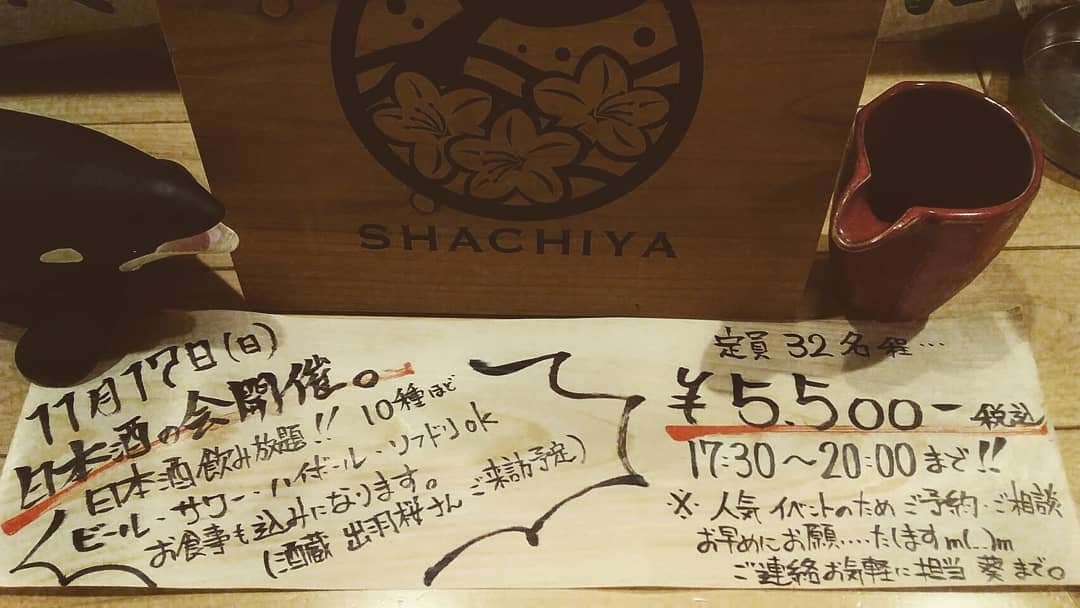 SHACHIYA
11月17日(日)
日本酒の会開催。
日本酒飲み放題!! 10種ほど
ビール・サワー・ハイボール・ソフドリok
お食事も込みになります。
(酒蔵 出羽桜さん ご来訪予定)
定員 32名程…
¥5,500- 税込
17:30〜20:00まで!!
※人気イベントのためご予約・ご相談
お早めにお願……たしますm(_ _)m
ご連絡お気軽に担当 葵まで。